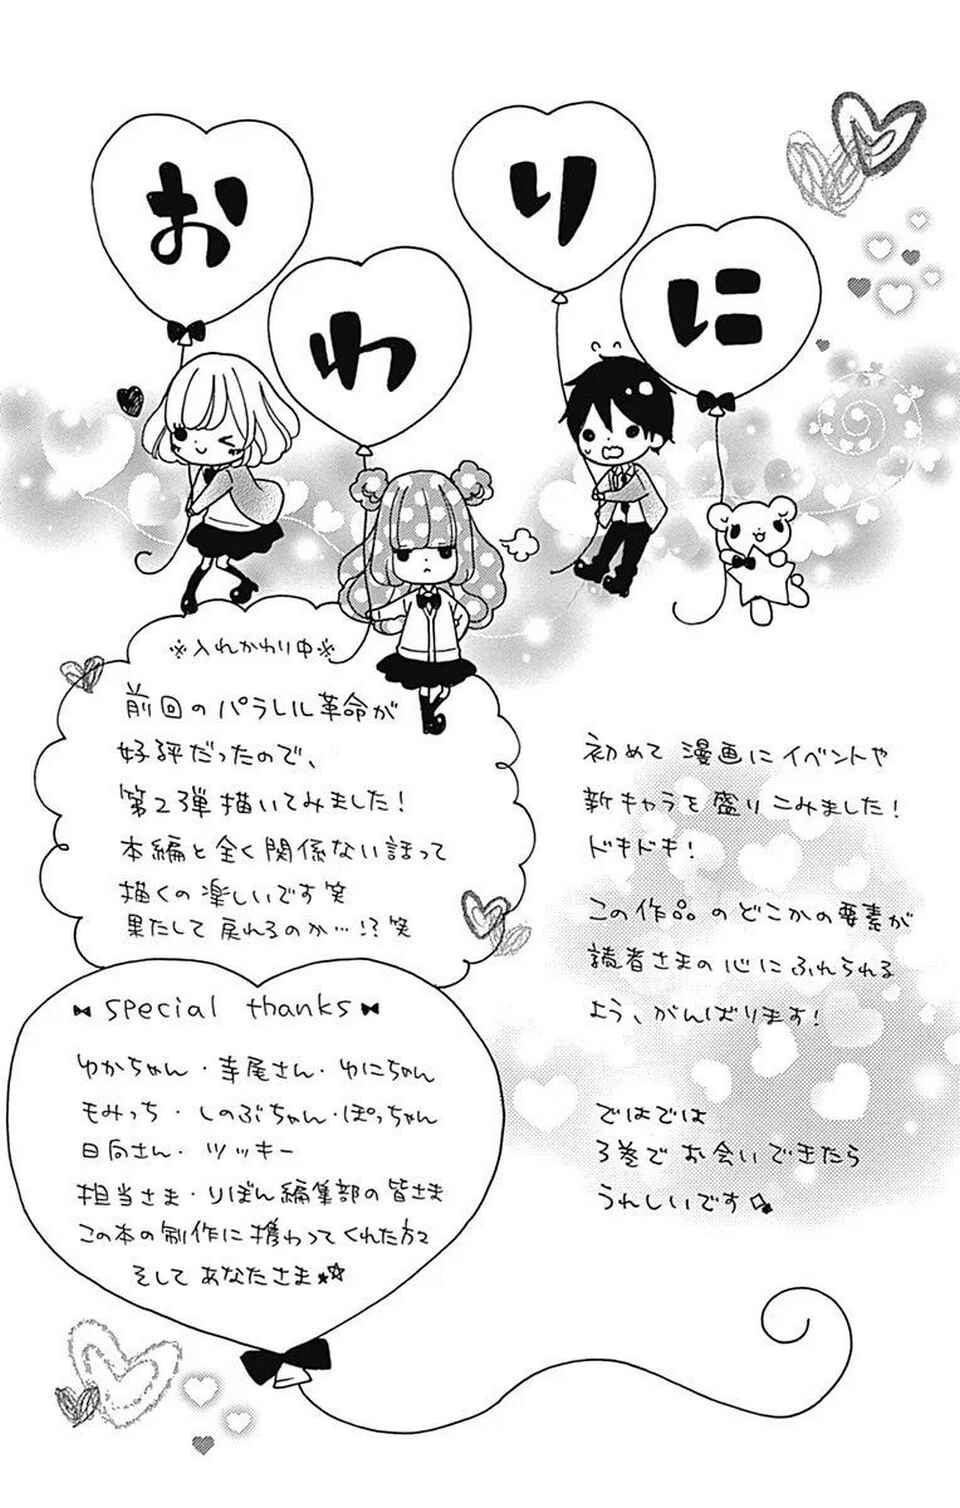 おわりに
※入れかわり中※
前回のパラレル革命が
好評だったので、
第2弾描いてみました!
本編と全く関係ない話って
描くの楽しいです笑
果たして戻れるのか…!?笑
初めて漫画にイベントや
新キャラを盛りこみました!
ドキドキ!
この作品のどこかの要素が
読者さまの心にふれられる
よう、がんばります!
ではでは
3巻でお会いできたら
うれしいです
special thanks
ゆかちゃん・寺尾さん・ゆにちゃん
もみっち・しのぶちゃん・ぽっちゃん
日向さん・ツッキー
担当さま・りぼん編集部の皆さま
この本の制作に携わってくれた方々
そしてあなたさま☆☆